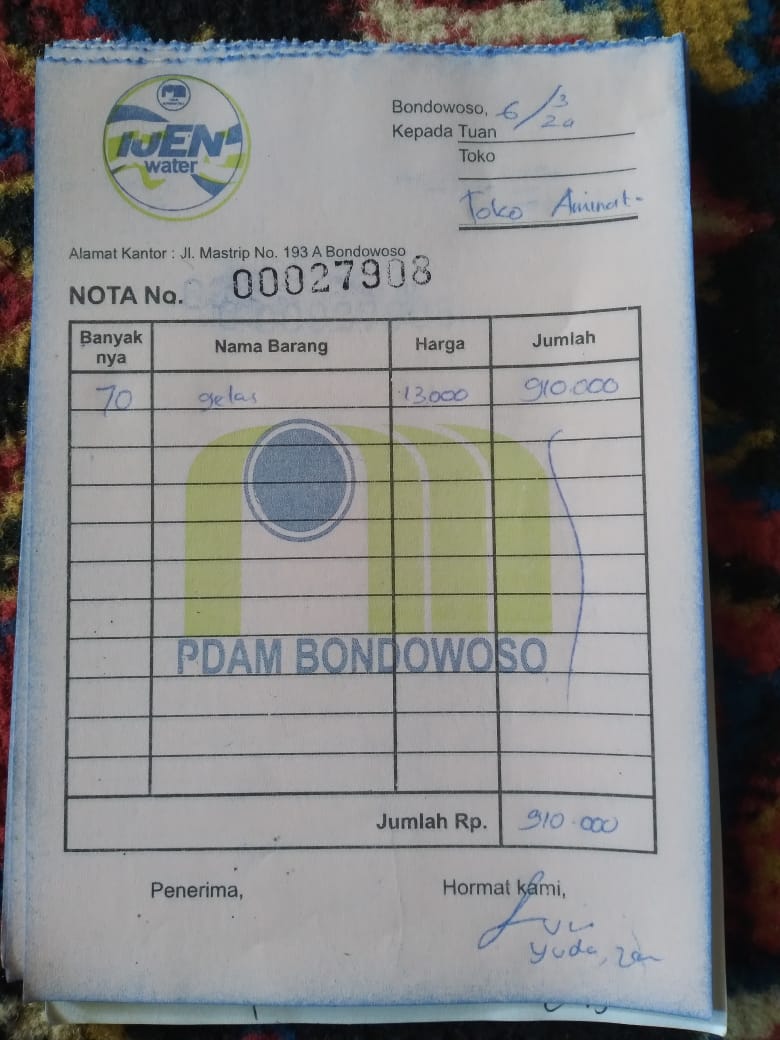 IJEN
water
Bondowoso, 6/3
Kepada Tuan
Toko
Toko
Alamat Kantor : Jl. Mastrip No. 193 A Bondowoso
NOTA No. 00027908
Banyak nya Nama Barang Harga Jumlah
70 gelas 13.000 910.000
PDAM BONDOWOSO
Jumlah Rp. 910.000
Penerima, Hormat kami,
Yuda,